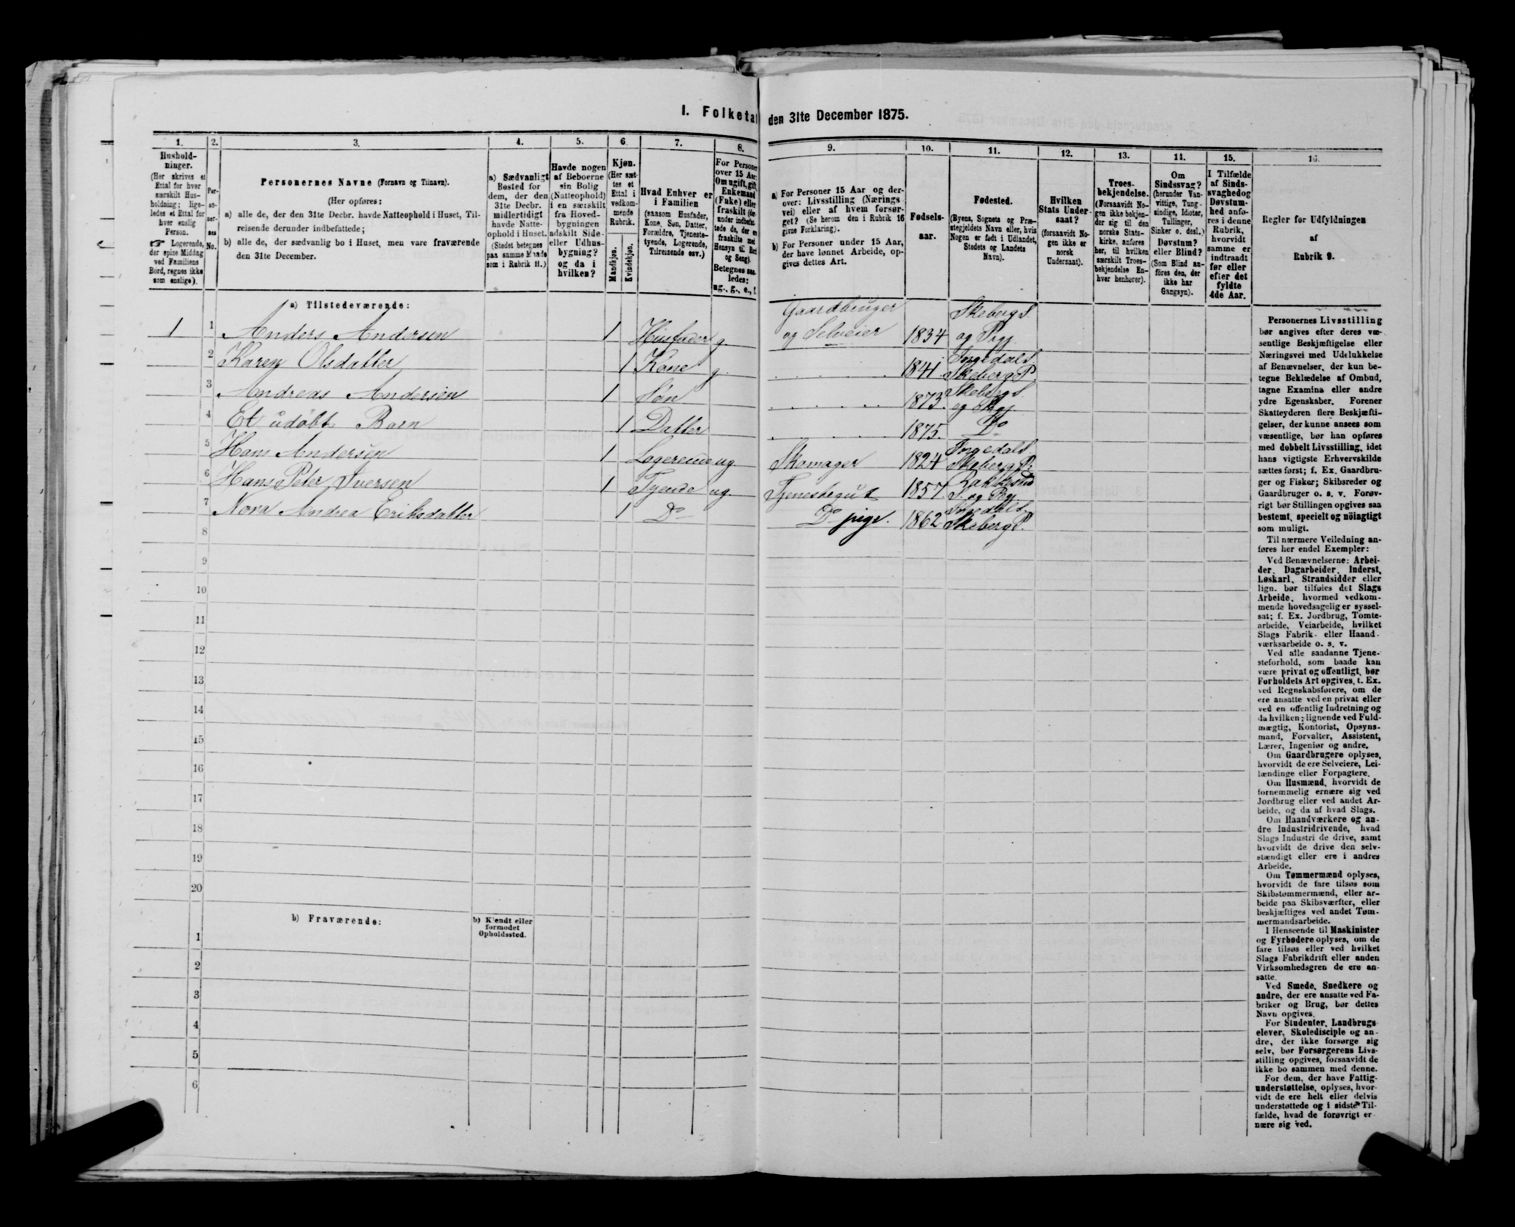 I. Folketal den 31te December 1875.
1. 2. 3. 4. 5. 6. 7. 8.
Hushold-
ninger.
(Her skrives et
Ettal for hver
særskilt Hus-
holdning; lige-
ledes et Ettal for
hver enslig
Person.
☞ Logerende,
der spise Middag
ved Familiens
Bord, regnes ikke
som enslige).
Per-
so-
ner-
nes
No.
Personernes Navne (Fornavn og Tilnavn).
(Her opføres:
a) alle de, der den 31te Decbr. havde Natteophold i Huset, Til-
reisende derunder indbefattede;
b) alle de, der sædvanlig bo i Huset, men vare fraværende
den 31te December.
a) Sædvanligt
Bosted for
dem, der den
31te Decbr.
midlertidigt
havde Natte-
ophold i Huset.
(Stedet betegnes
paa samme Maade
som i Rubrik 11.)
Havde nogen
af Beboerne
sin Bolig
(Natteophold)
i en særskilt
fra Hoved-
bygningen
adskilt Side-
eller Udhus-
bygning?
og da i
hvilken?
Kjøn.
(Her sæt-
tes et
Ettal i
vedkom-
mende
Rubrik.
Mandkjøn.
Kvindekjøn.
Hvad Enhver er
i Familien
(saasom Husfader,
Kone, Søn, Datter,
Forældre, Tjeneste-
tyende, Logerende,
Tilreisende osv.)
For Personer
over 15 Aar:
Om ugift, gift,
Enkemand
(Enke) eller
fraskilt
Betegnes saa-
ledes:
ug., g., e., f.
9. 10. 11. 12. 13. 14. 15. 16.
a) For Personer 15 Aar og der-
over: Livsstilling (Nærings-
vei) eller af hvem forsør-
get? (Se herom den i Rubrik 16
givne Forklaring).
b) For Personer under 15 Aar,
der have lønnet Arbeide, op-
gives dettes Art.
Fødsels-
aar.
Fødested.
(Byens, Sognets og Præ-
stegjeldets Navn eller, hvis
Nogen er født i Udlandet,
Stedets og Landets
Navn).
Hvilken
Stats Under-
saat?
(forsaavidt No-
gen ikke er
norsk
Undersaat).
Troes-
bekjendelse.
(Forsaavidt No-
gen ikke bekjen-
der sig til den
norske Stats-
kirke, anføres
her, til hvilken
særskilt Troes-
bekjendelse En-
hver henhører).
Om
Sindssvag?
(herunder Van-
vittige, Tung-
sindige, Idioter,
Tullinger,
Sinker o. desl.)
Døvstum?
eller Blind?
(Som Blind an-
føres den, der
ikke har
Gangsyn).
I Tilfælde
af Sinds-
svaghed og
Døvstum-
hed anfø-
res i denne
Rubrik,
hvorvidt
samme er
indtraadt
før eller
efter det
fyldte
4de Aar.
Regler for Udfyldningen
af
Rubrik 9.
a) Tilstedeværende:
1 1 Anders Andersen 1 Husfader g. Gaardbruger og Selveier 1834 Skebergs og Pgj
2 Karen Olsdatter 1 Kone g. 1841 Ingedals Skeberg P.
3 Andreas Andersen 1 Søn 1873 Skebergs og Pgj
4 Et udøbt Barn 1 Datter 1875 Do
5 Hans Andersen 1 Logerende ug Skomager 1824 Ingedals Skeberg P.
6 Hans Peter Iversen 1 Tyende ug. Tjenestegut 1857
7 Nora Andrea Eriksdatter 1 Do Do pige. 1862 Ingedals Skeberg P.
8
9
10
11
12
13
14
15
16
17
18
19
20
b) Fraværende:
b) Kjendt eller
formodet
Opholdssted.
1
2
3
4
5
6
Personernes Livsstilling
bør angives efter deres væ-
sentlige Beskjæftigelse eller
Næringsvei med Udelukkelse
af Benævnelser, der kun be-
tegne Beklædelse af Ombud,
tagne Examina eller andre
ydre Egenskaber. Forener
Skatteyderen flere Beskjæfti-
gelser, der kunne ansees som
væsentlige, bør han opføres
med dobbelt Livsstilling, idet
hans vigtigste Erhvervskilde
sættes først; f. Ex. Gaardbru-
ger og Fisker; Skibsreder og
Gaardbruger o. s. v. Forøv-
rigt bør Stillingen opgives saa
bestemt, specielt og nøiagtigt
som muligt.
Til nærmere Veiledning an-
føres her endel Exempler:
Ved Benævnelserne: Arbei-
der, Dagarbeider, Inderst,
Løskarl, Strandsidder eller
lign. bør tilføies det Slags
Arbeide, hvormed vedkom-
mende hovedsagelig er syssel-
sat; f. Ex. Jordbrug, Tomte-
arbeide, Veiarbeide, hvilket
Slags Fabrik- eller Haand-
værksarbeide o. s. v.
Ved alle saadanne Tjene-
steforhold, som baade kan
være privat og offentligt, bør
Forholdets Art opgives, t. Ex.
ved Regnskabsførere, om de
ere ansatte ved en privat eller
ved en offentlig Indretning og
da hvilken; lignende ved Fuld-
mægtig, Kontorist, Opsyns-
mand, Forvalter, Assistent,
Lærer, Ingeniør og andre.
Om Gaardbrugere oplyses,
hvorvidt de ere Selveiere, Lei-
lændinge eller Forpagtere.
Om Husmænd, hvorvidt de
fornemmelig ernære sig ved
Jordbrug eller ved andet Ar-
beide, og da af hvad Slags.
Om Haandværkere og an-
dre Industridrivende, hvad
Slags Industri de drive, samt
hvorvidt de drive den selv-
stændigt eller ere i andres
Arbeide.
Om Tømmermænd oplyses,
hvorvidt de fare tilsøs som
Skibstømmermænd, eller ar-
beide paa Skibsværfter, eller
beskjæftiges ved andet Tøm-
mermandsarbeide.
I Henseende til Maskinister
og Fyrbødere oplyses, om de
fare tilsøs eller ved hvilket
Slags Fabrikdrift eller anden
Virksomhedsgren de ere an-
satte.
Ved Smede, Snedkere og
andre, der ere ansatte ved Fa-
briker og Brug, bør dettes
Navn opgives.
For Studenter, Landbrugs-
elever, Skoledisciple og an-
dre, der ikke forsørge sig
selv, bør Forsørgerens Livs-
stilling opgives, forsaavidt de
ikke bo sammen med denne.
For dem, der have Fattig-
understøttelse, oplyses, hvor-
vidt de ere helt eller delvis
understøttede og i sidste Til-
fælde, hvad de forøvrigt er-
nære sig ved.